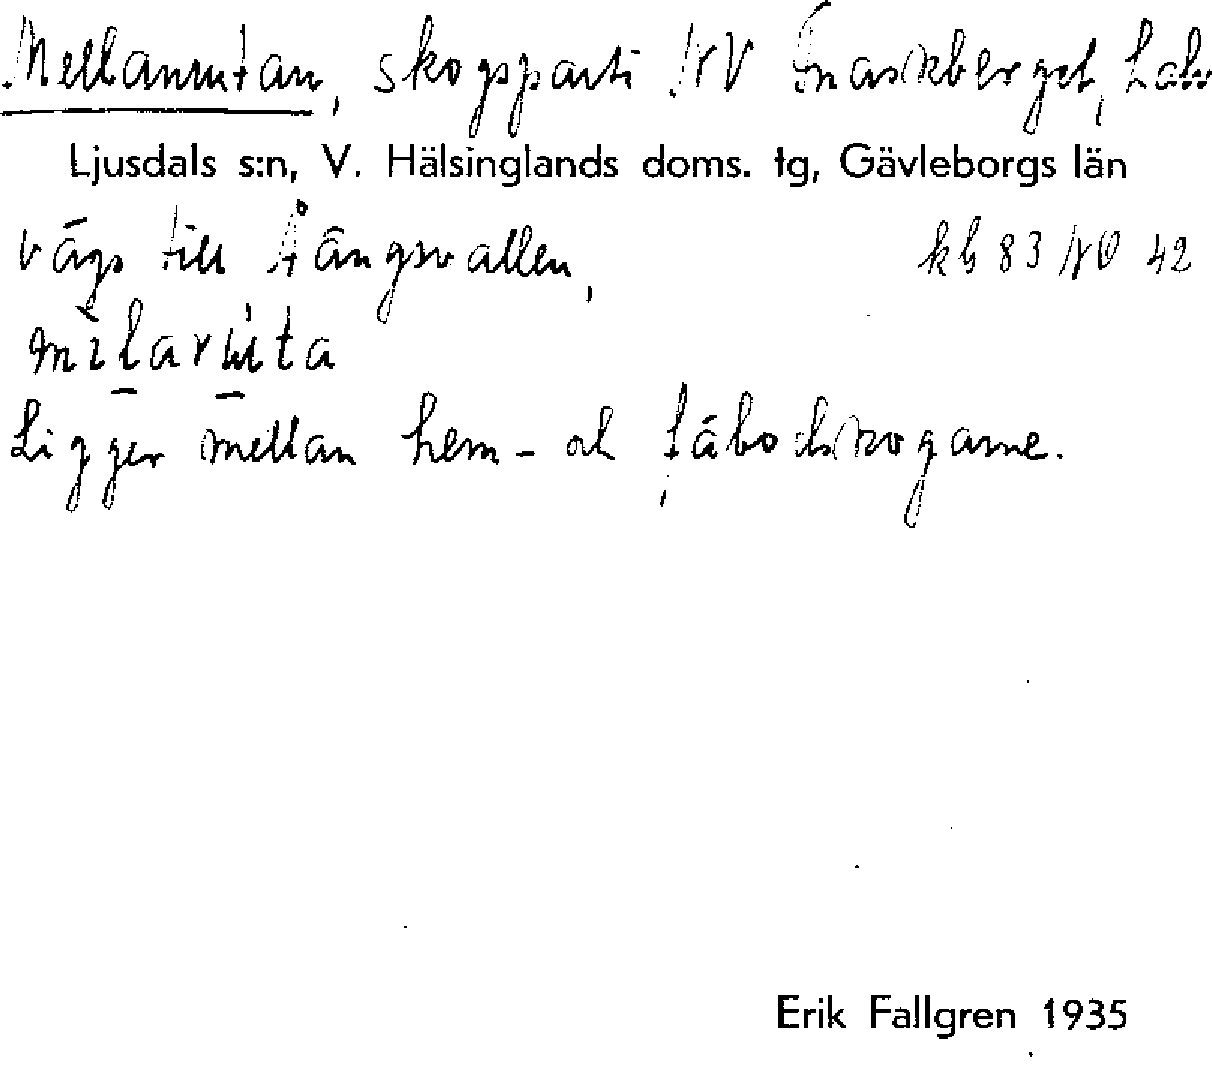 Mellanrutan, skogsparti NV Snaskberget, halv
Ljusdals s:n, V. Hälsinglands doms. tg, Gävleborgs län
vägs till Åängsvallen, kb 83 NO 42
Ligger mellan hem- och fäbodskogarne.
Erik Fallgren 1935